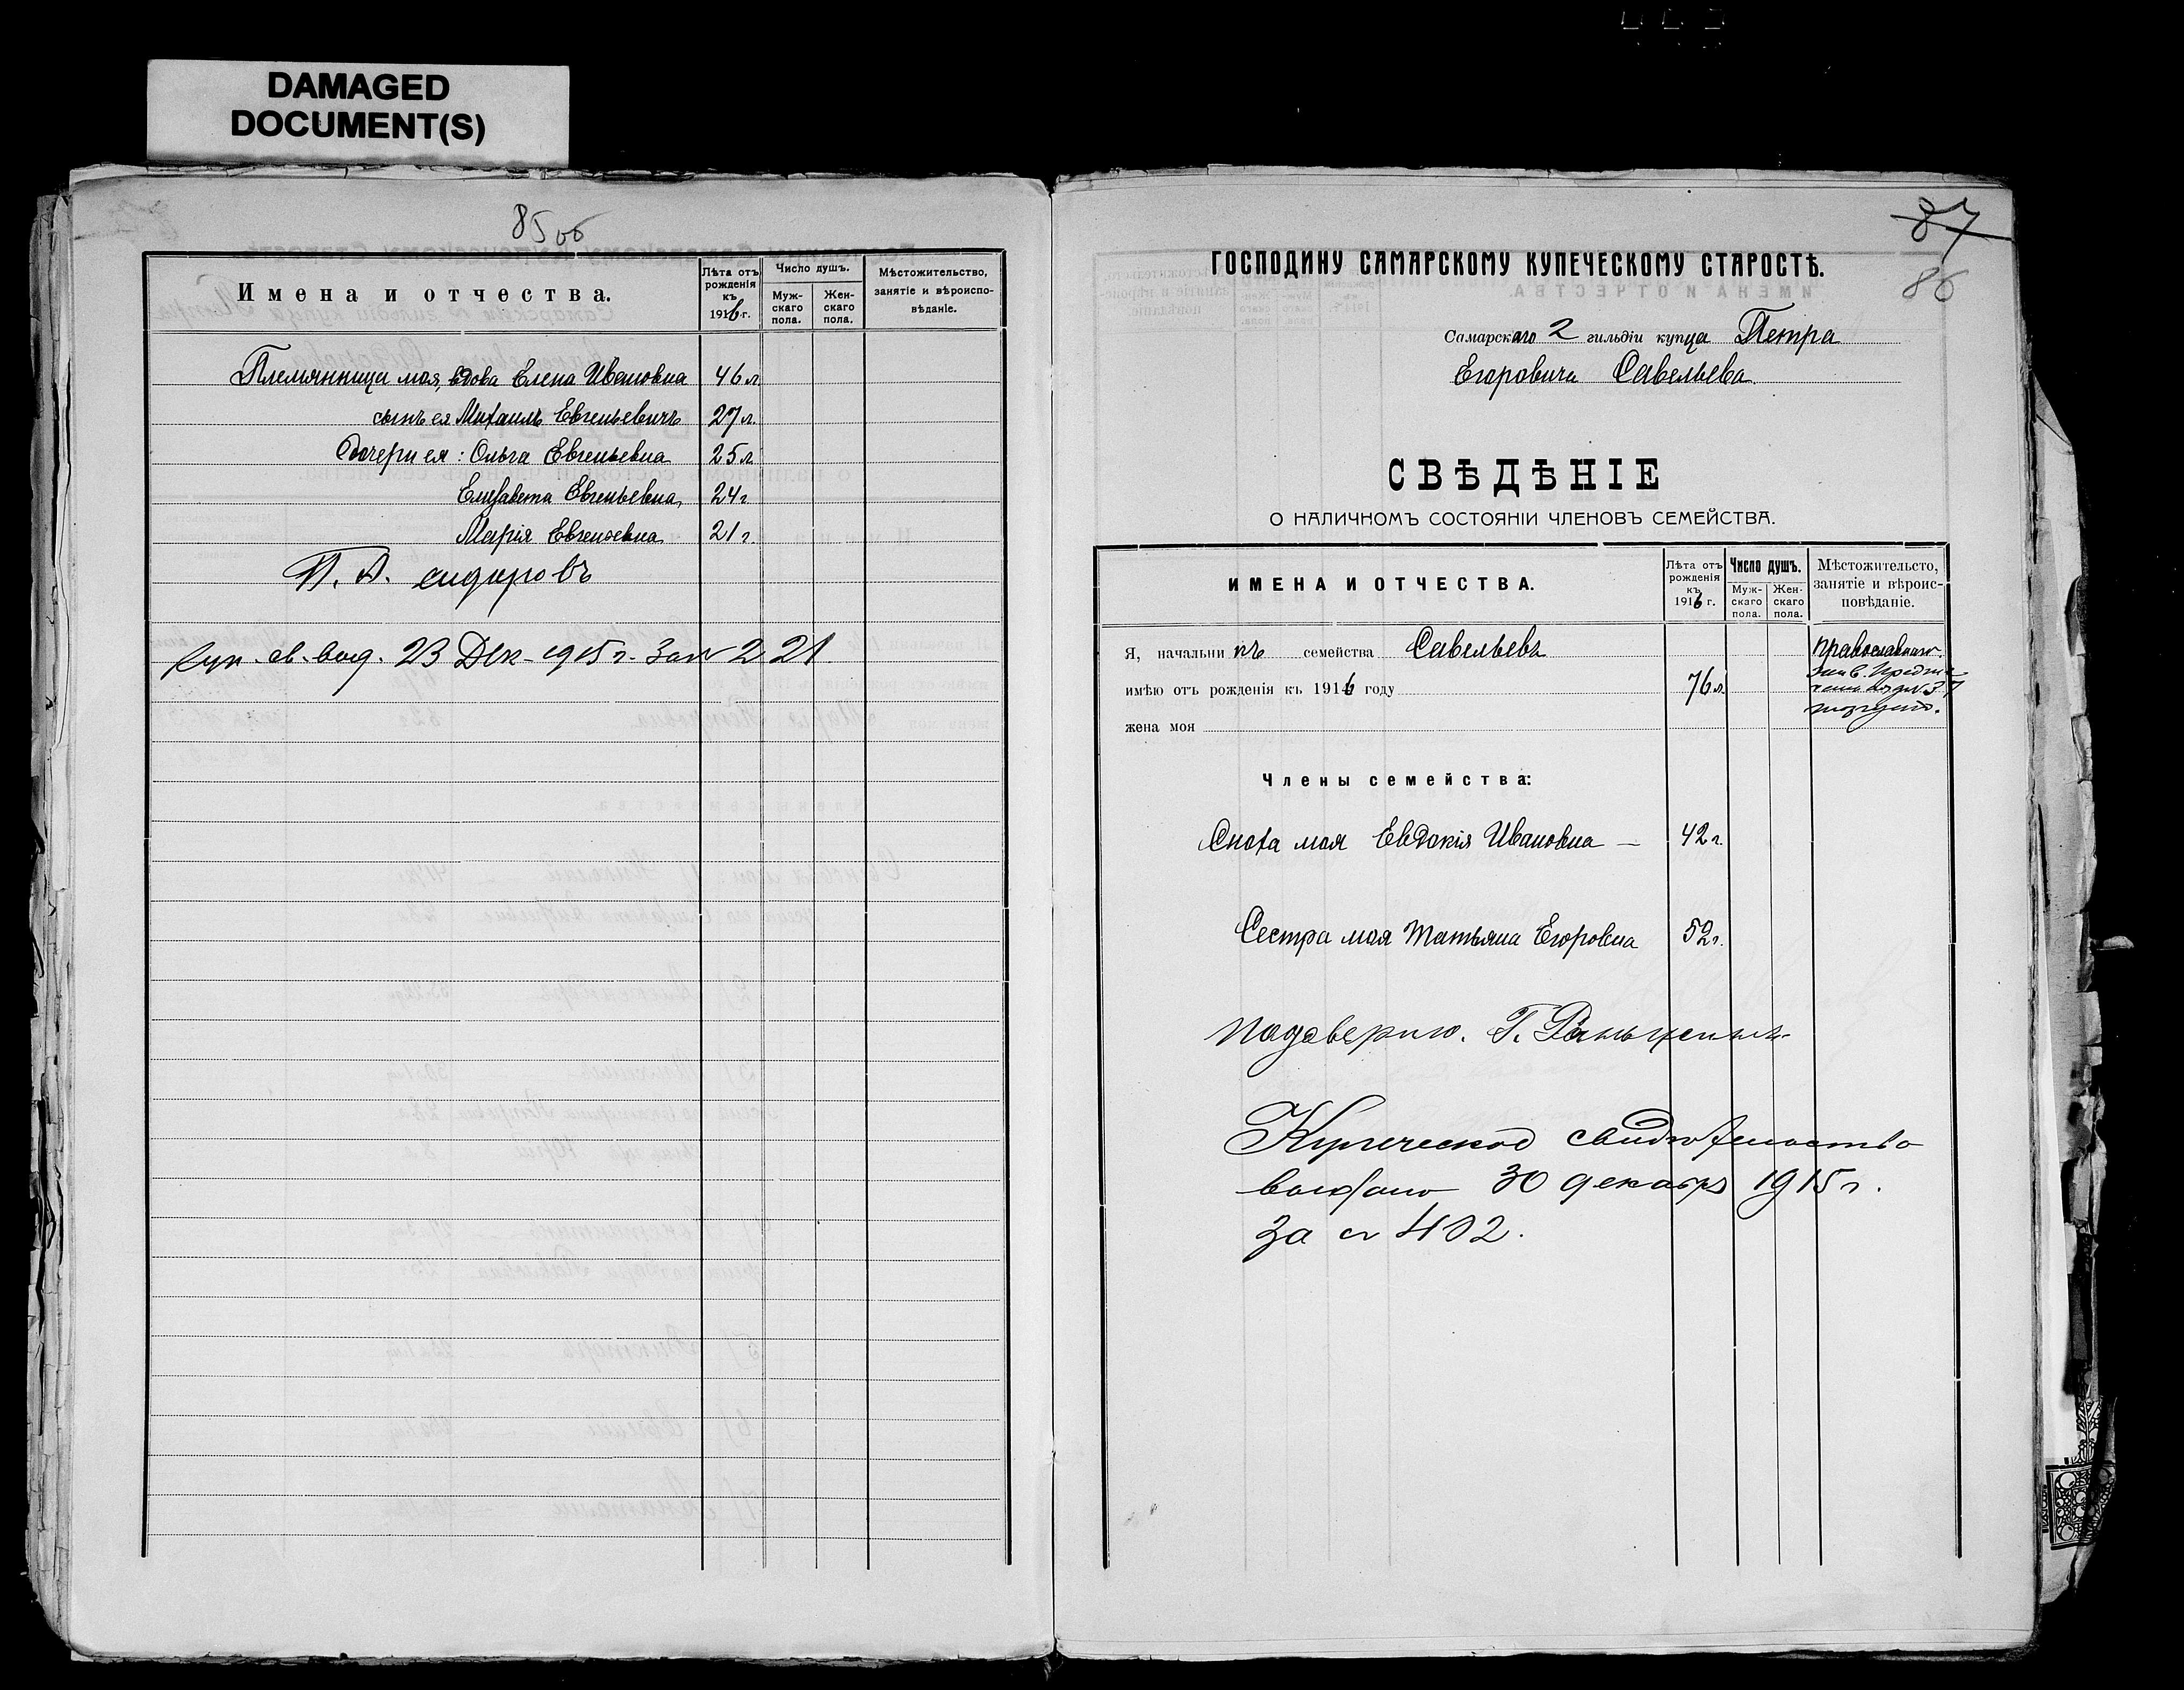 DAMAGED
DOCUMENT(S)
85 об
Имена и отчества.
Лѣта отъ рожденія къ 1916 г.
Число душъ.
Муж-скаго пола.
Жен-скаго пола.
Мѣстожительство, занятіе и вѣроиспо-вѣданіе.
Племянница моя, вдова Елена Ивановна 46 л.
сынъ ея Михаилъ Евгеньевичъ 27 л.
Дочери ея: Ольга Евгеньевна 25 л.
Елизавета Евгеньевна 24 г
Марія Евгеньевна 21 г.
П. А. сидоровъ
Куп. св. выд. 23 Дек. 1915 г. За № 221
87
86
ГОСПОДИНУ САМАРСКОМУ КУПЕЧЕСКОМУ СТАРОСТѢ.
Самарскаго 2 гильдіи купца Петра
Егоровича Савельева.
СВѢДѢНІЕ
О НАЛИЧНОМЪ СОСТОЯНІИ ЧЛЕНОВЪ СЕМЕЙСТВА.
ИМЕНА И ОТЧЕСТВА.
Лѣта отъ рожденія къ 1916 г.
Число душъ.
Муж-скаго пола.
Жен-скаго пола.
Мѣстожительсто, занятіе и вѣроис-повѣданіе.
Я, начальникъ семейства Савельевъ православнаго.
имѣю отъ рожденія къ 1916 году 76 л.
жена моя
Члены семейства:
Сноха моя Евдокія Ивановна — 42 г.
Сестра моя Татьяна Егоровна 52 г.
Г.
Купеческое свидѣтельство
выдано 30 декабря 1915 г.
За № 402.